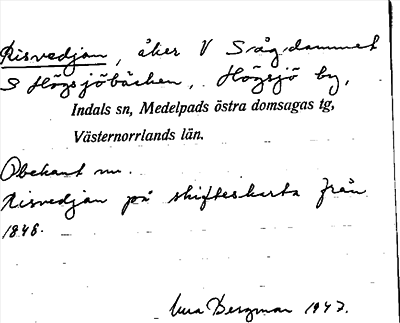 Risvedjan, åker V Sågdammet
S Högsjöbäcken, Högsjö by,
Indals sn, Medelpads östra domsagas tg,
Västernorrlands län.
Obekant nu.
Risvedjan på skifteskarta från
1846.
Bergman 1947.